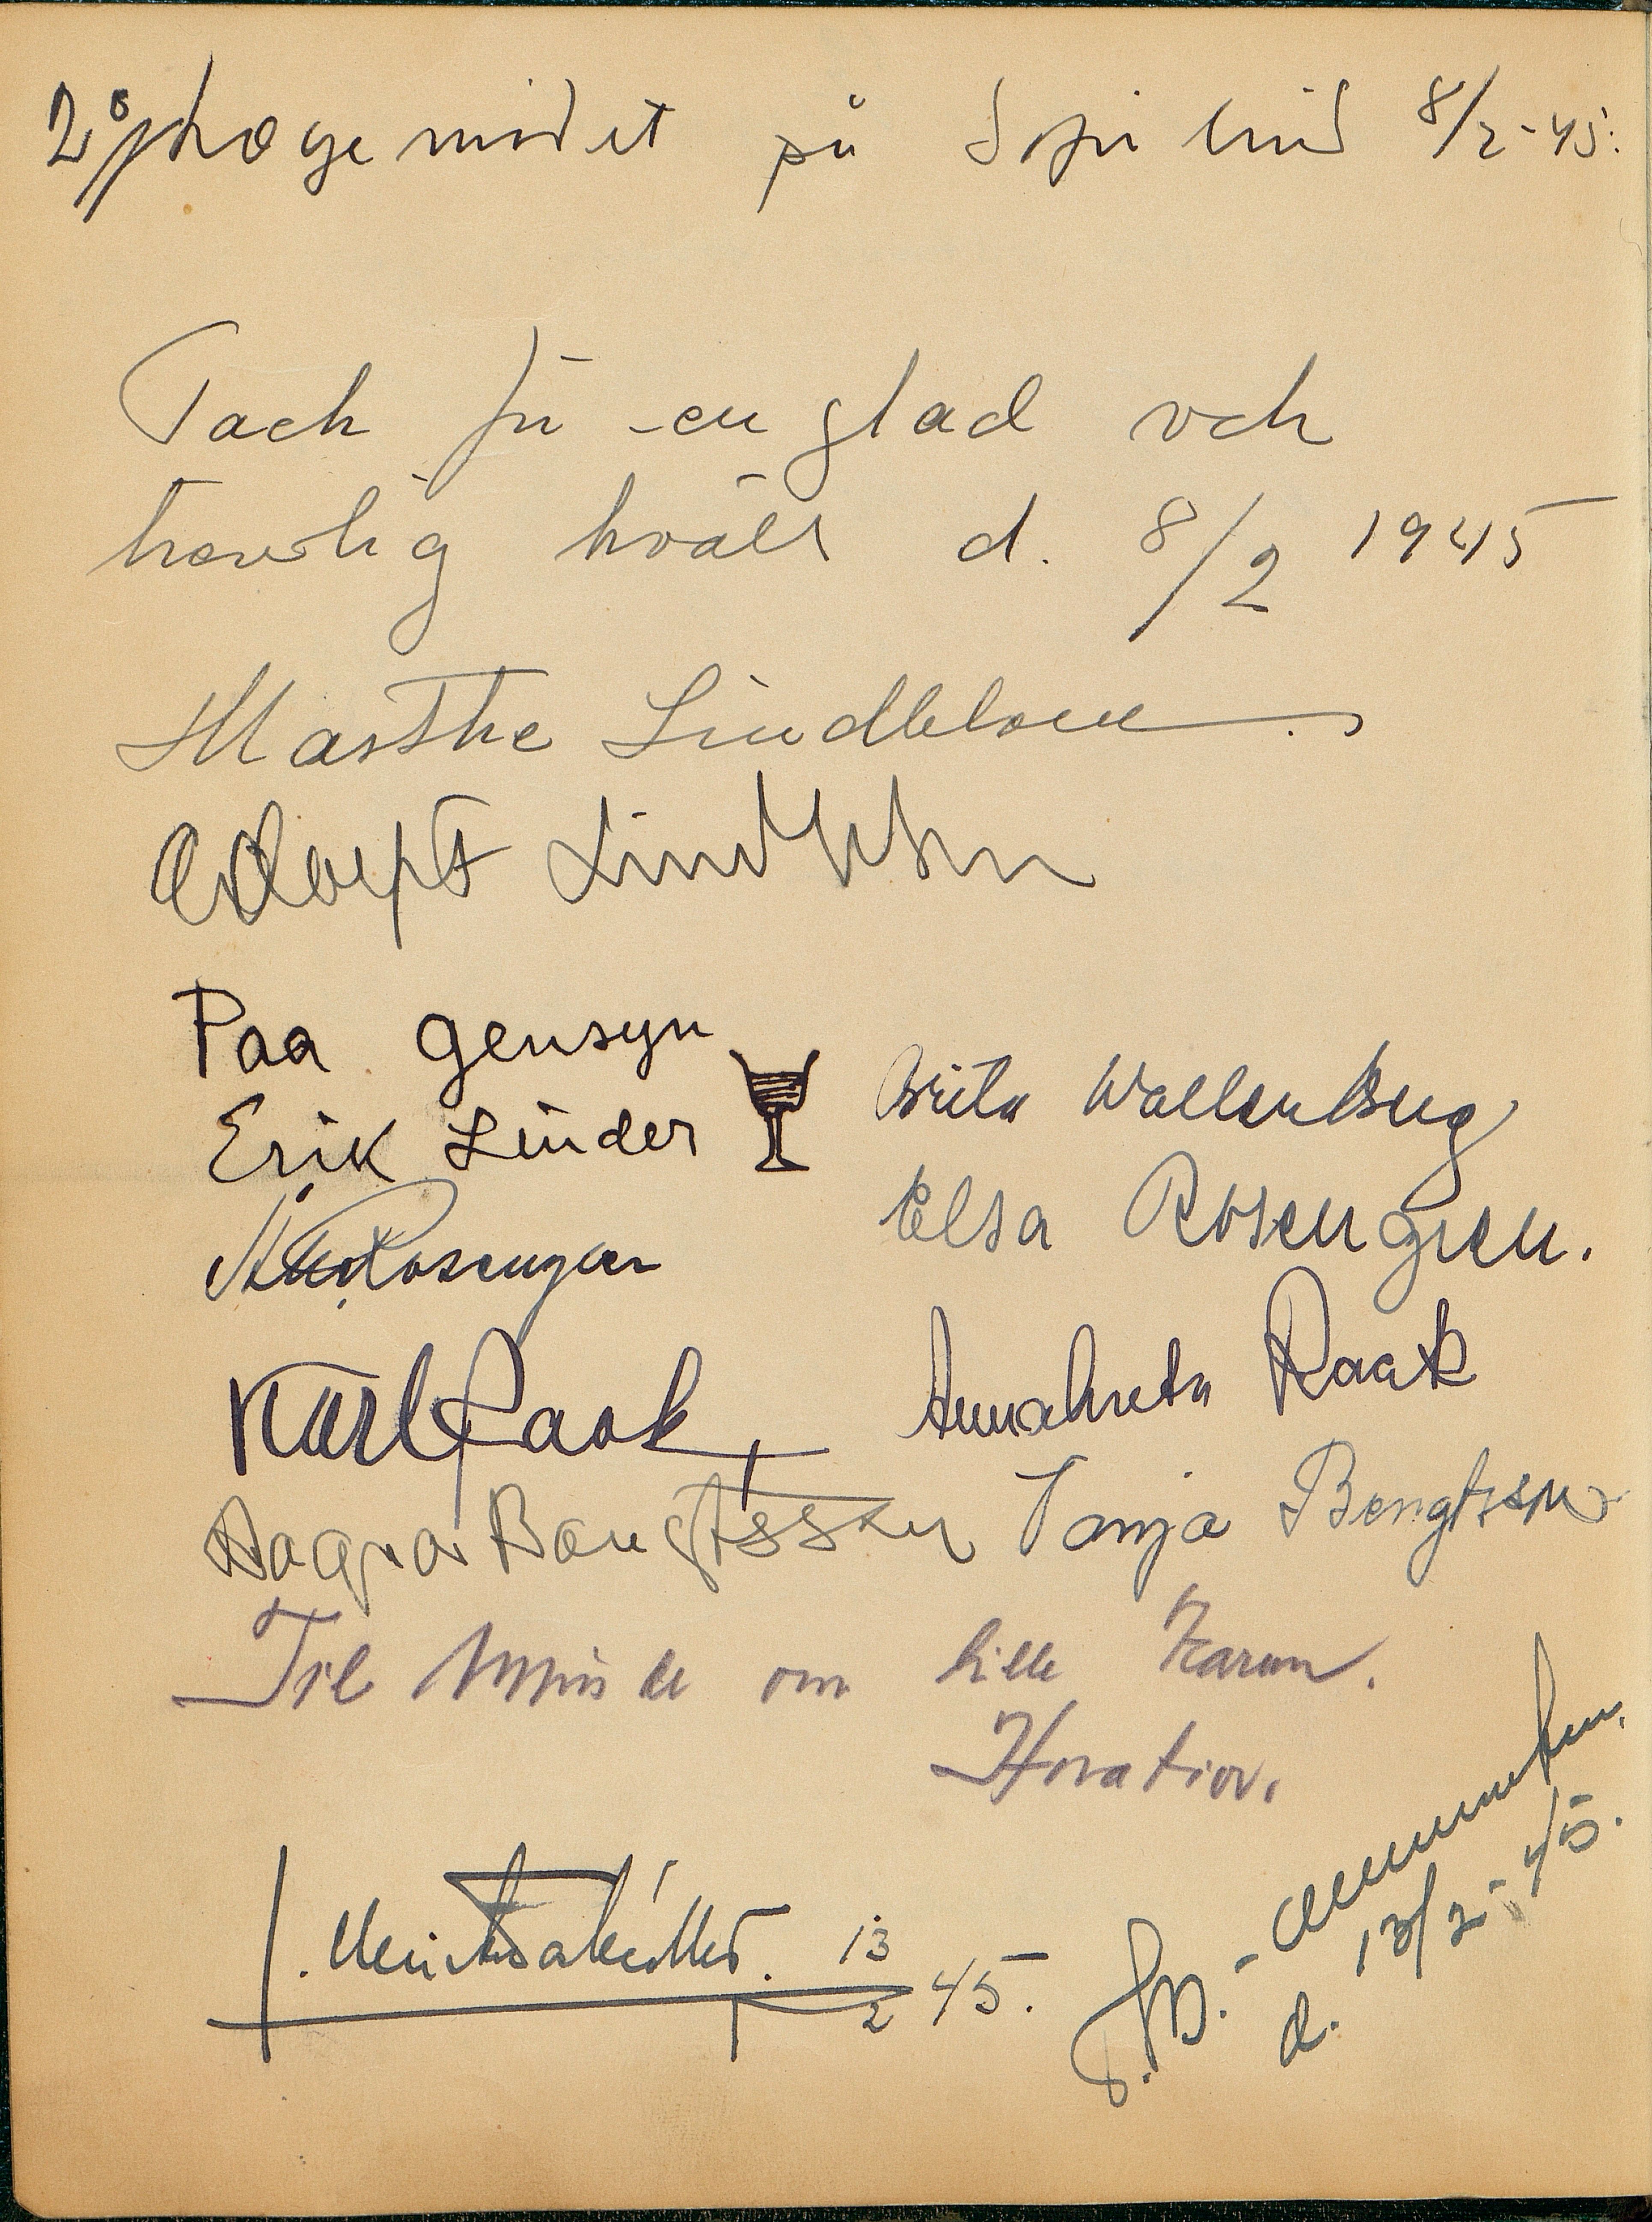 på 8/2-45.
Tack för en glad och
trevlig kväll d. 8/2 1945
Marthe Lindblom.
Adolf Lindblom
Paa gensyn
Erik Linder
Brita Wallenberg
Rosengren
Elsa Rosengren.
Karl Raak
Annagreta Raak
Ragnar Bengtsson
Tanja Bengtsson
Til Minde om lille Karen.
Horatio.
13/2 45.
d. 13/2-45.